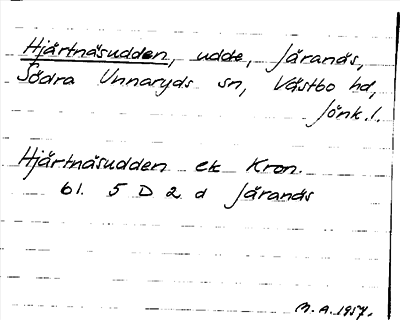 Hjärtnäsudden, udde, Järanäs,
Södra Unnaryds sn, Västbo hd,
Jönk. l.
Hjärtnäsudden ek Kron.
bl. 5 D 2 d Järanäs
M. A. 1957.